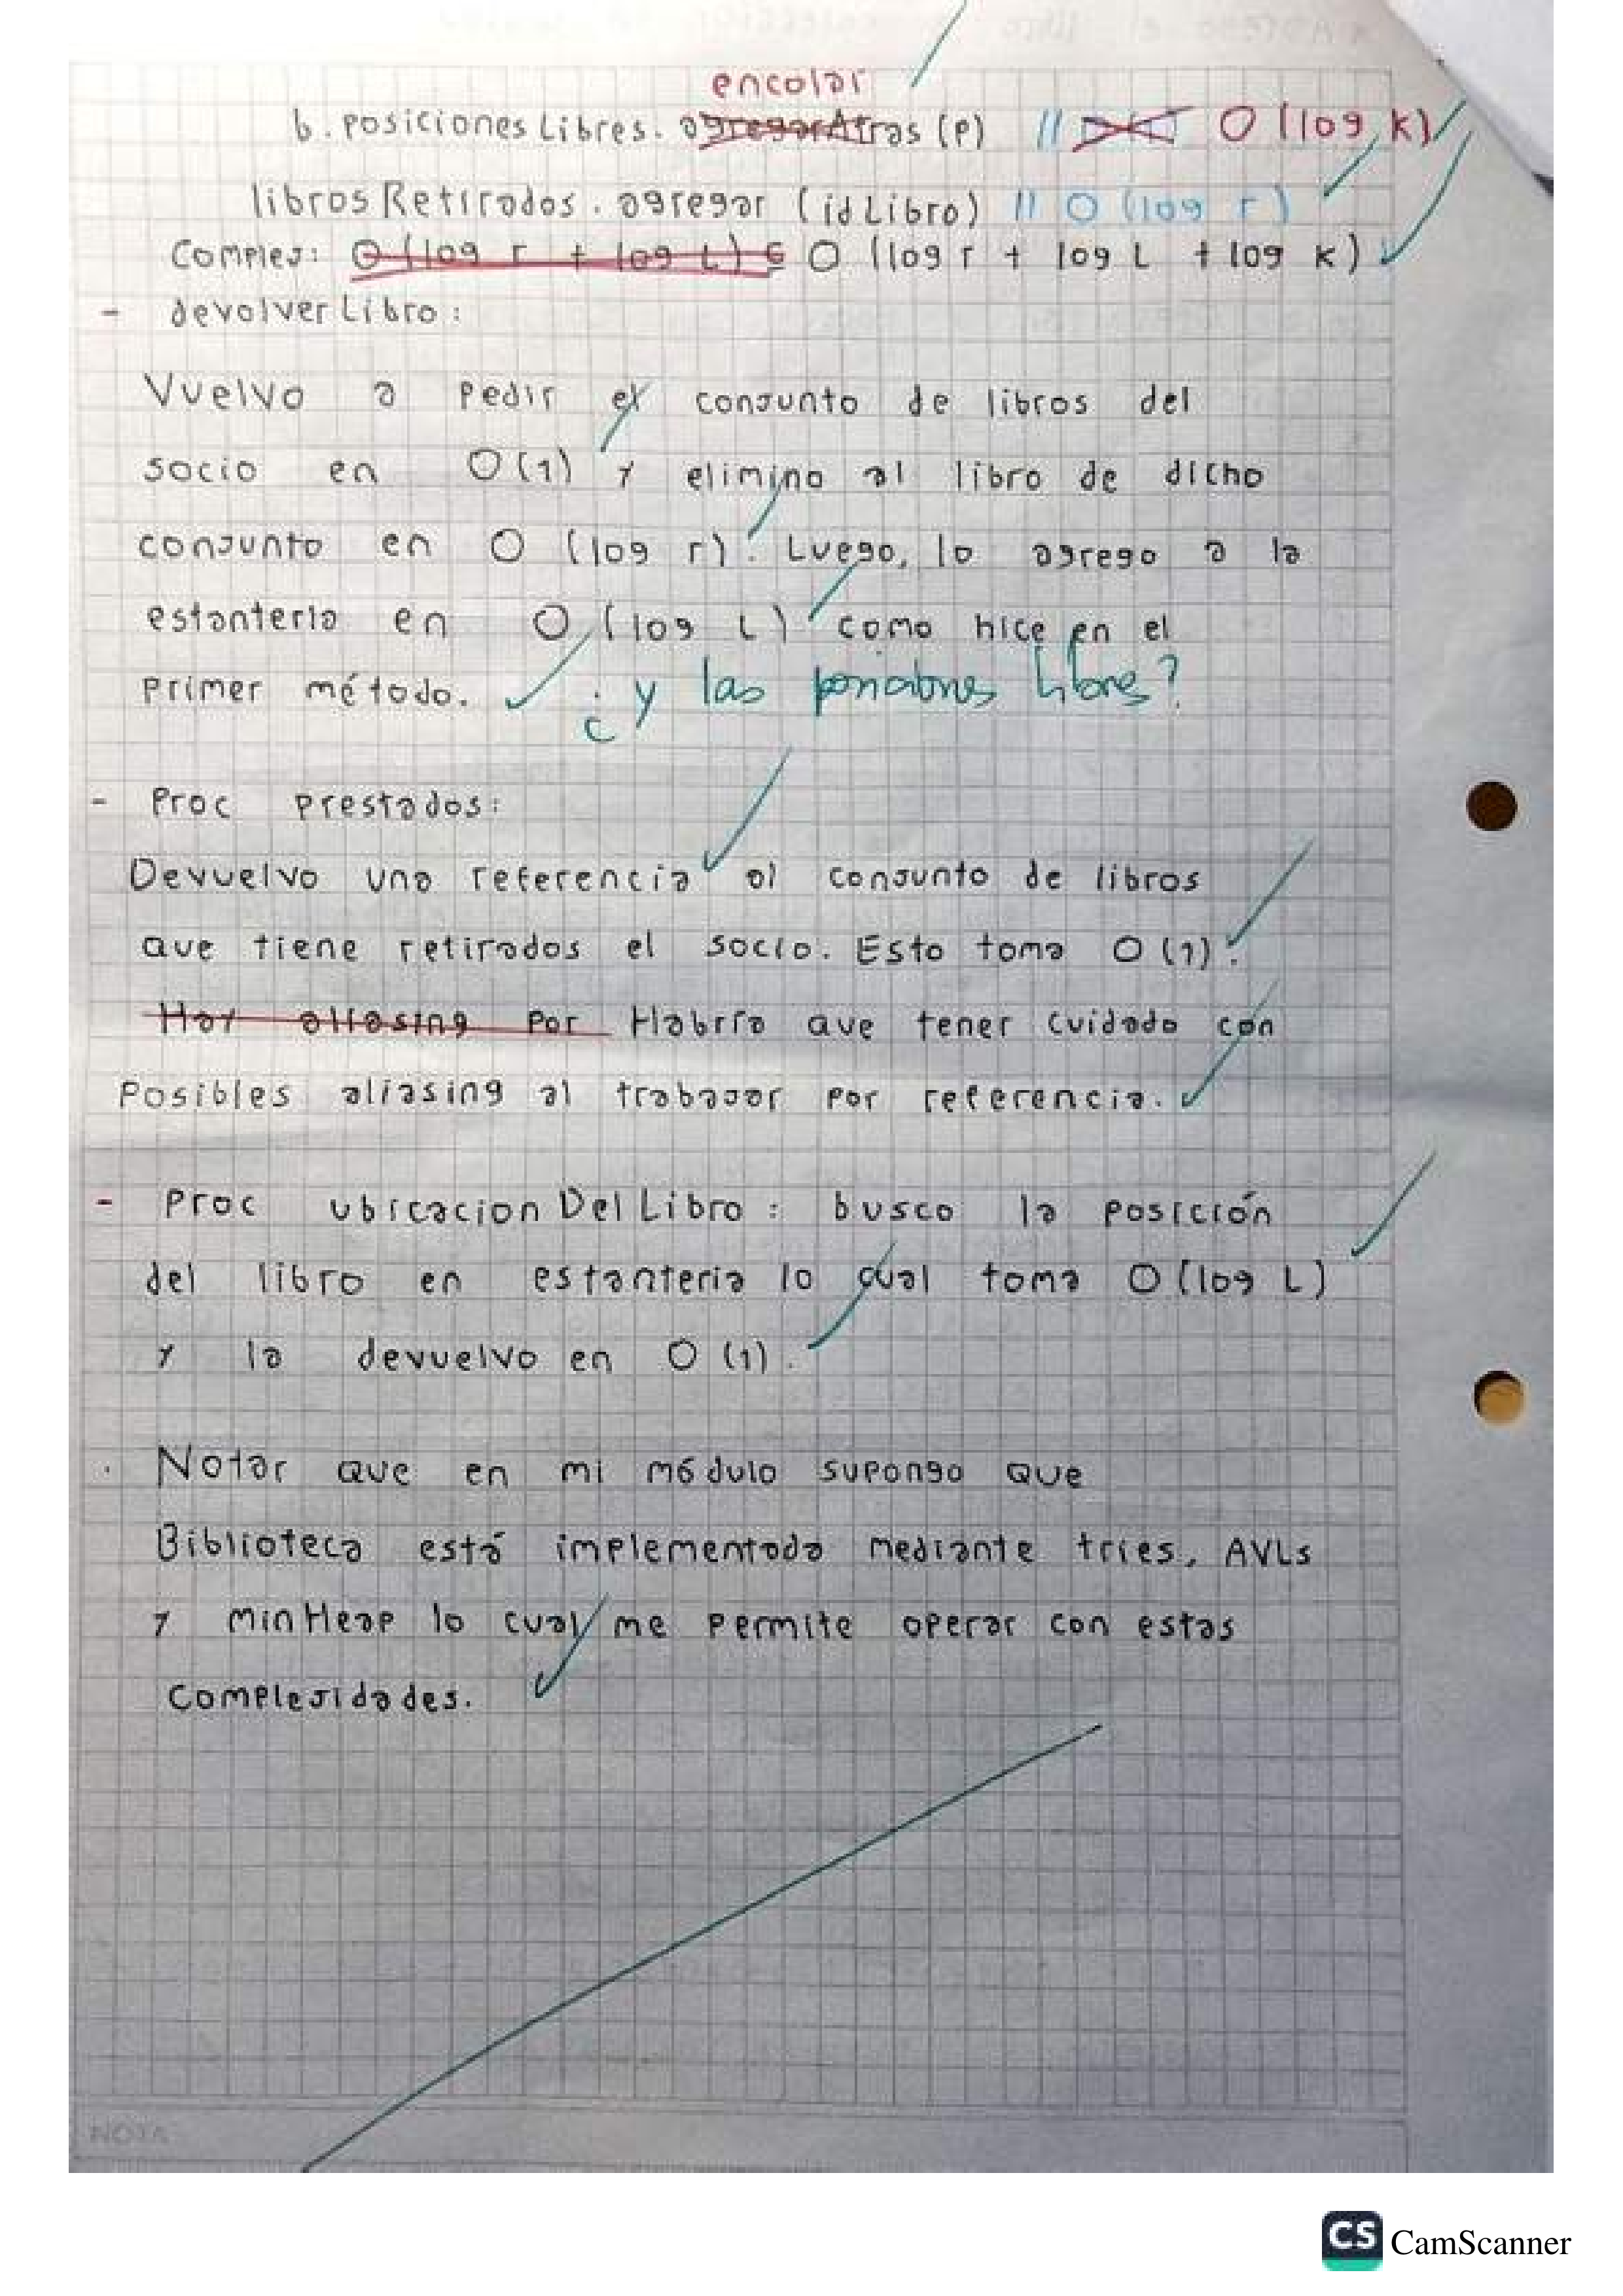 encolar
b. posiciones Libres. agregarAtras (p) // O (log K)
libros Retirados. agregar (id Libro) // O (log r)
Complej: O (log r + log L) ∈ O (log r + log L + log K)
- devolver Libro:
Vuelvo a pedir el conjunto de libros del
socio en O(1) y elimino al libro de dicho
conjunto en O (log r). Luego, lo agrego a la
estanteria en O (log L) como hice en el
primer método. ¿y las posiciones libres?
- Proc prestados:
Devuelvo una referencia al conjunto de libros
que tiene retirados el socio. Esto toma O (1).
Hay aliasing por Habría que tener cuidado con
posibles aliasing al trabajar por referencia.
- Proc ubicacion Del Libro: busco la posición
del libro en estanteria lo cual toma O (log L)
y la devuelvo en O (1).
. Notar que en mi módulo supongo que
Biblioteca está implementada mediante tries, AVLs
y minHeap lo cual me permite operar con estas
complejidades.
NOTA
CS CamScanner